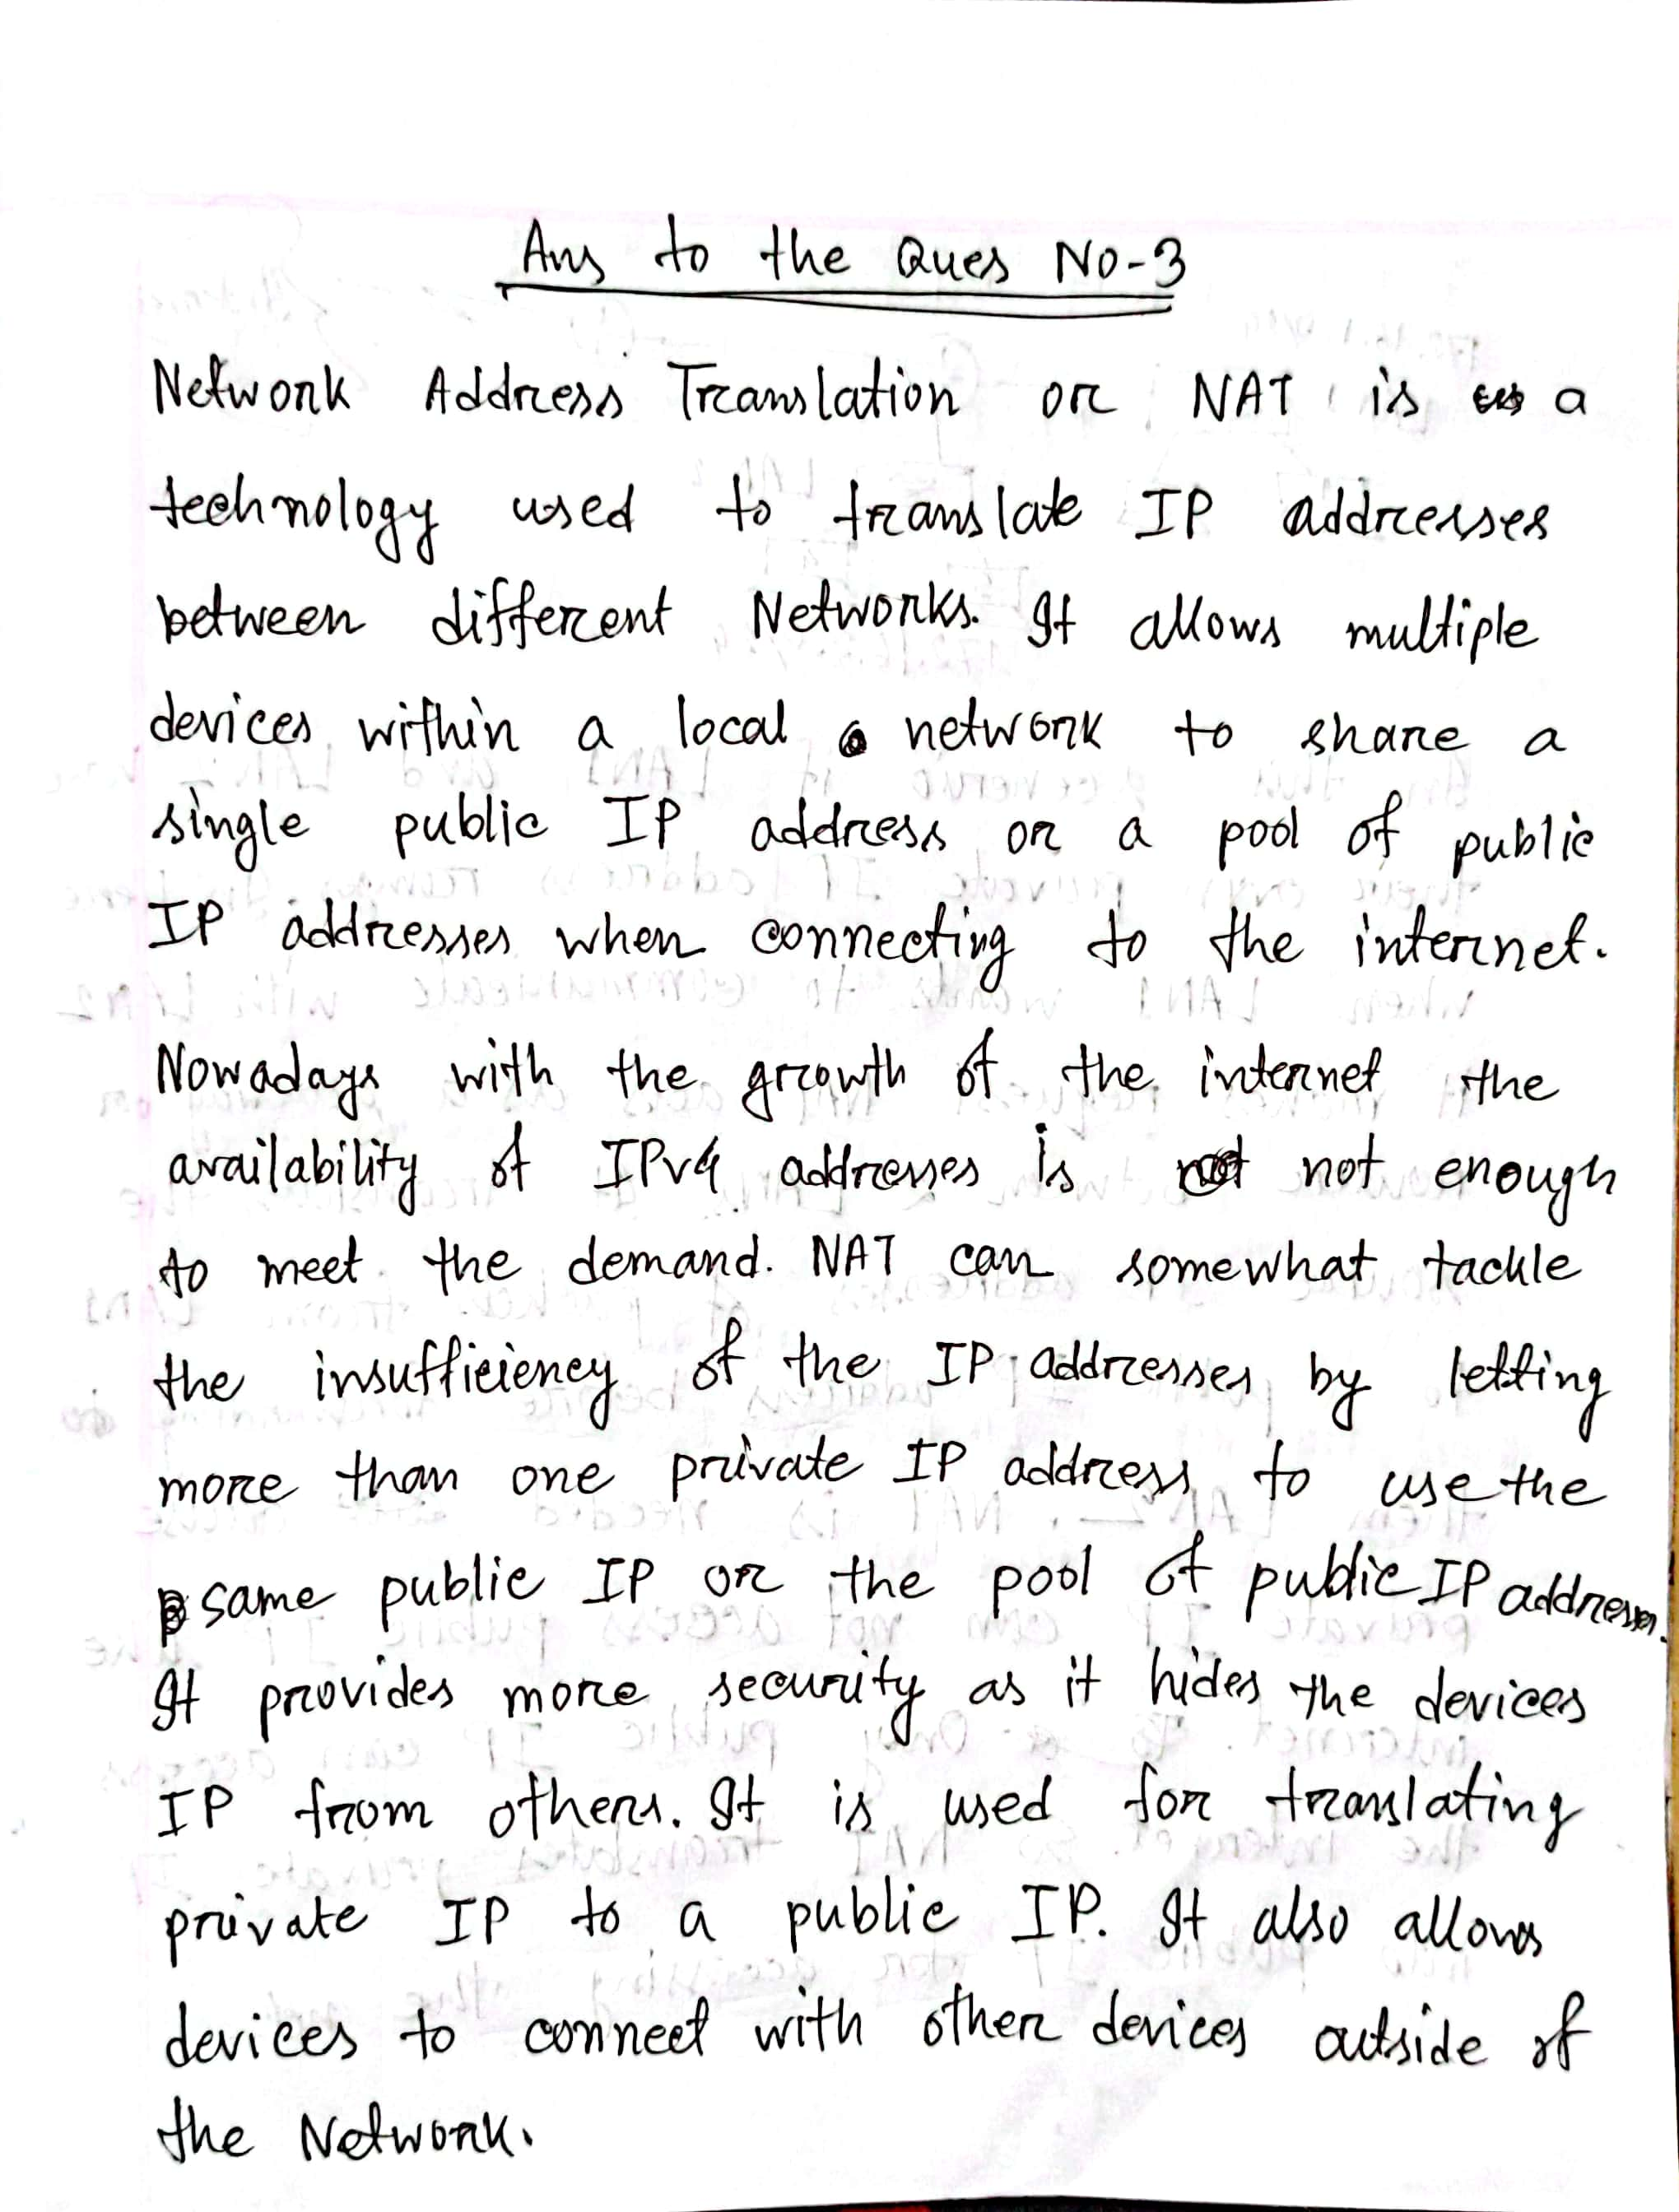 Ans to the Ques No-3
Network Address Translation or NAT is a
technology used to translate IP addresses
between different Networks. It allows multiple
devices within a local network to share a
single public IP address or a pool of public
IP addresses when connecting to the internet.
Nowadays with the growth of the internet the
availability of IPv4 addresses is not not enough
to meet the demand. NAT can somewhat tackle
the insufficiency of the IP addresses by letting
more than one private IP address to use the
same public IP or the pool of public IP addresses.
It provides more security as it hides the devices
IP from others. It is used for translating
private IP to a public IP. It also allows
devices to connect with other devices outside of
the Network.